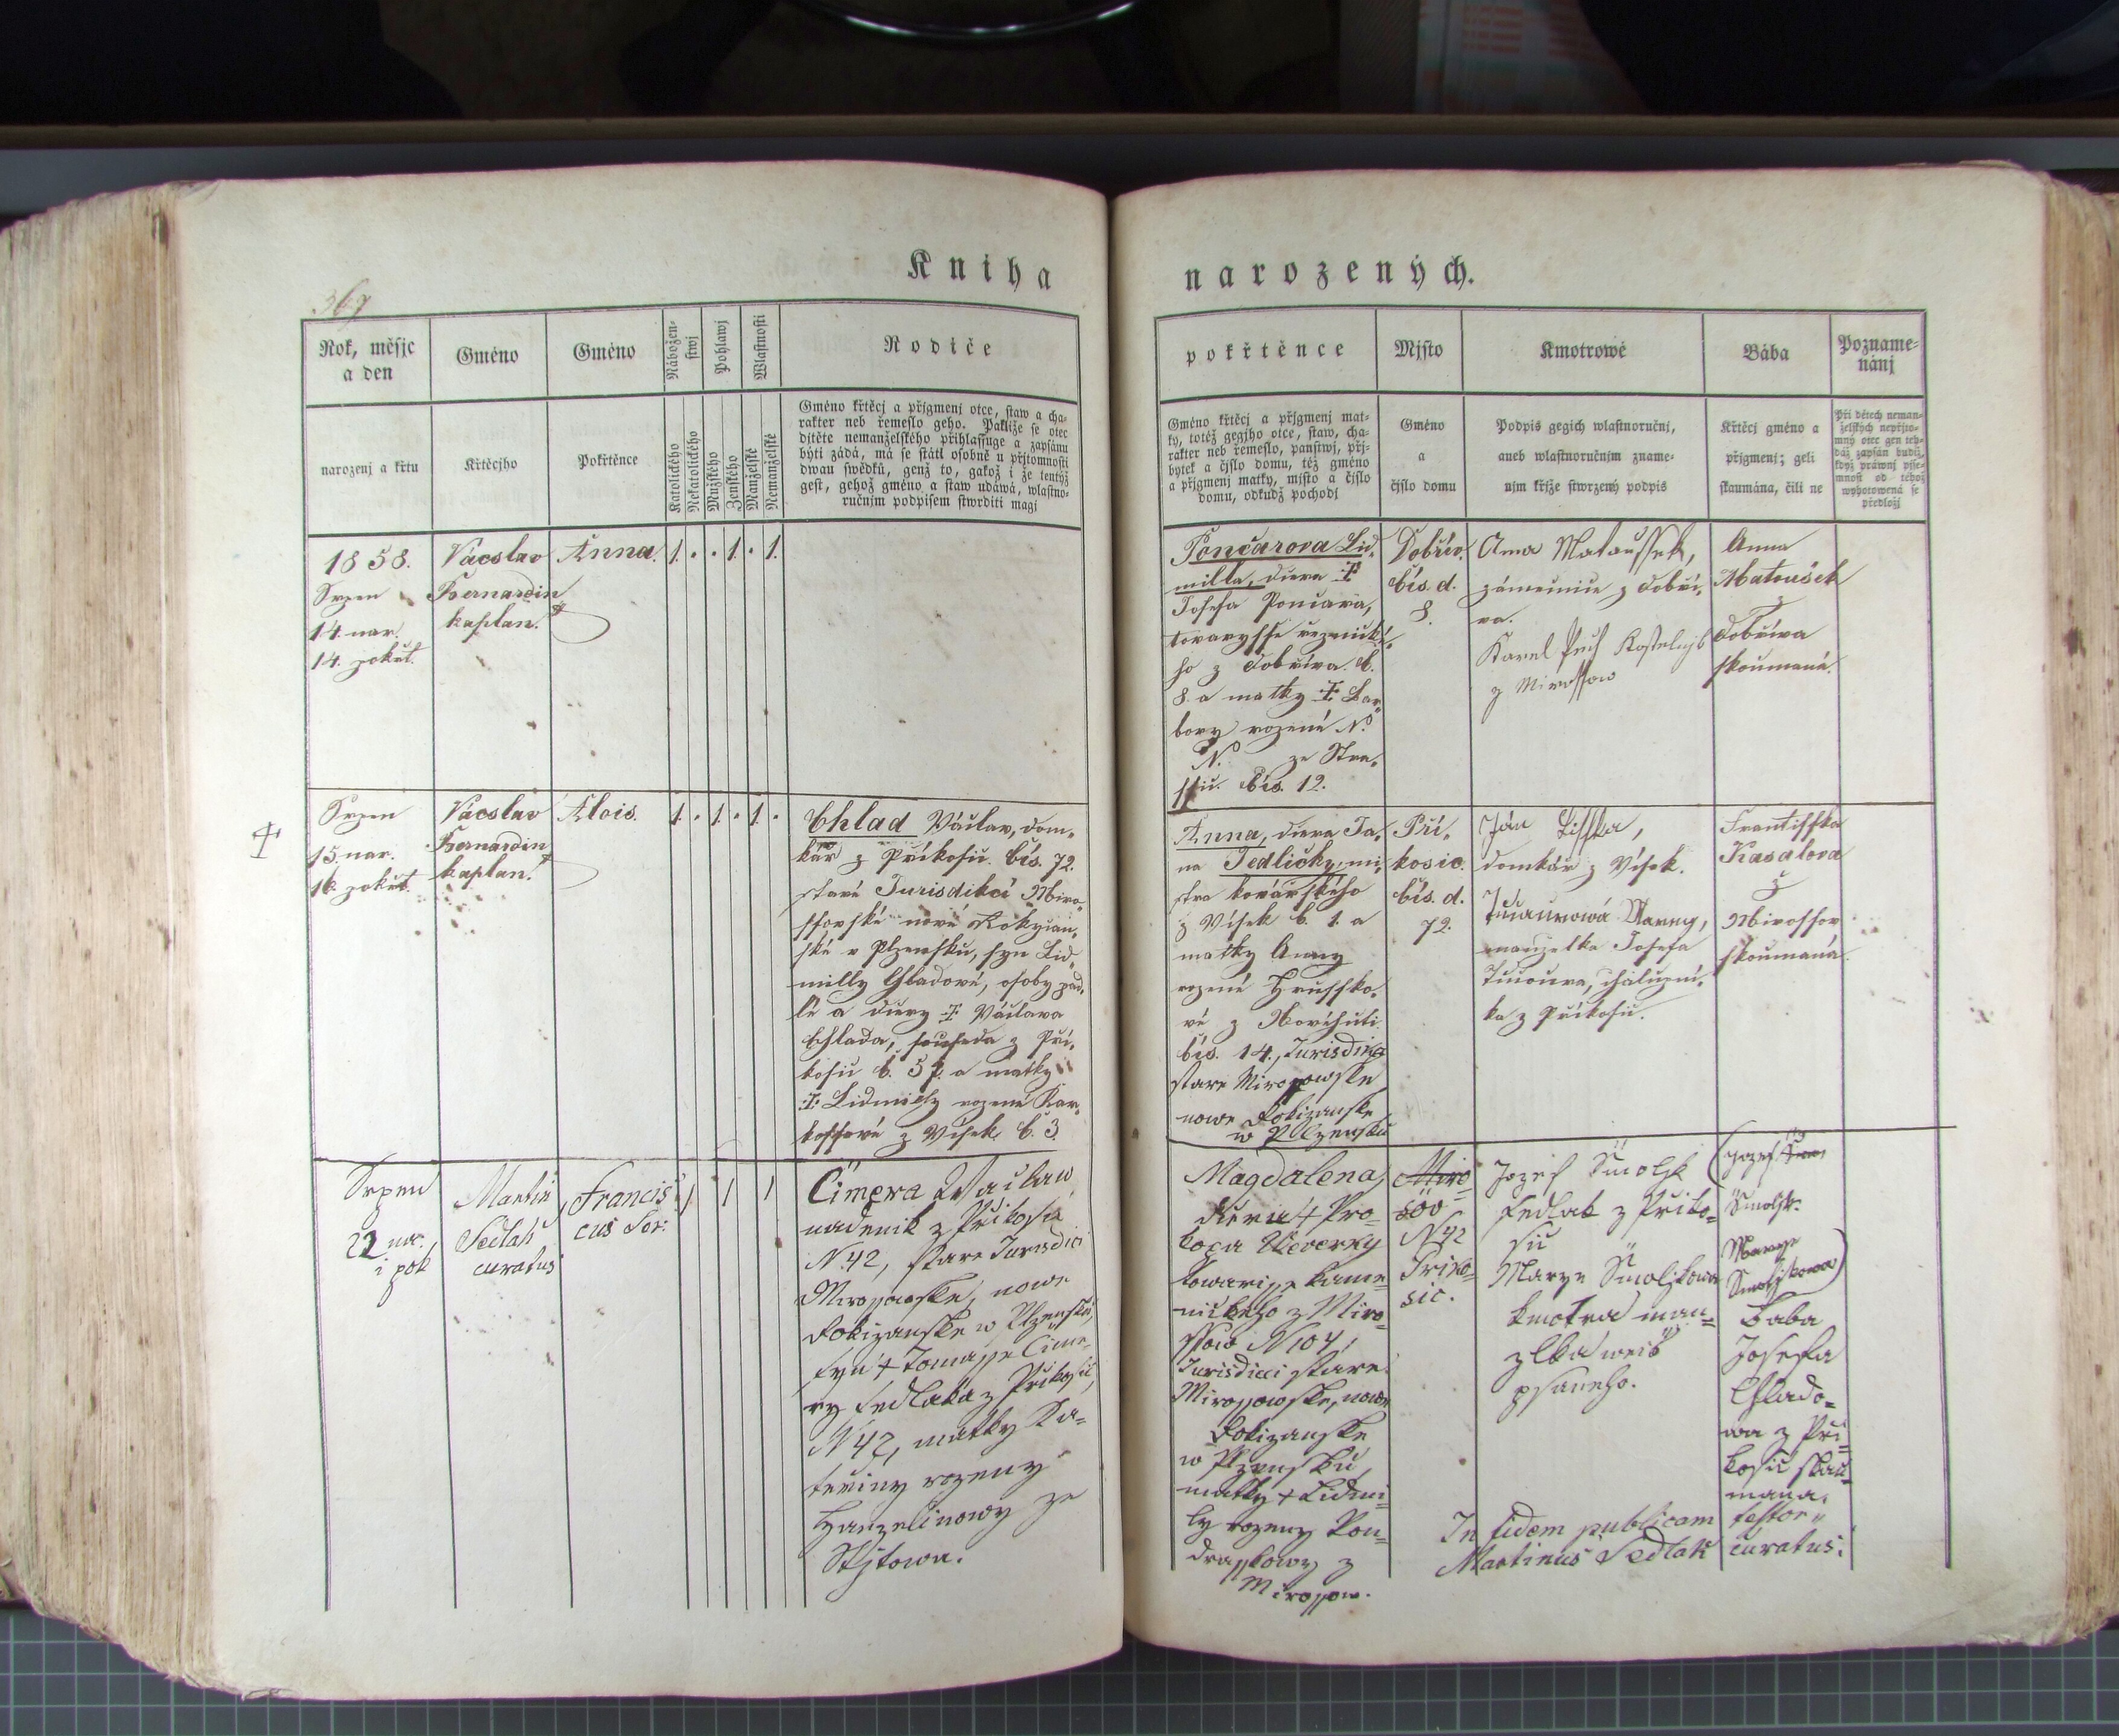 369
Kniha
narozených.
Rok, měsjc
a den
Gméno
Gméno
Nábožen-
stwj
Pohlawj
Wlastnosti
Rodiče
pokřtěnce
Mjsto
Kmotrowé
Bába
Pozname-
nánj
narozenj a křtu
Křtěcjho
Pokřtěnce
Katolického
Nekatolického
Mužského
Ženského
Manželské
Nemanželské
Gméno křtěcj a přjgmenj otce, staw a cha-
rakter neb řemeslo geho. Pakliže se otec
djtěte nemanželského přihlassuge a zapsánu
býti žádá, má se státi osobně u přjtomnosti
dwau swědků, genž to, gakož i že tentýž
gest, gehož gméno a staw udáwá, wlastno-
ručnjm podpisem stwrditi magj
Gméno křtěcj a přjgmenj mat-
ky, totéž gegjho otce, staw, cha-
rakter neb řemeslo, panstwj, přj-
bytek a čjslo domu, též gméno
a přjgmenj matky, mjsto a čjslo
domu, odkudž pocházj
Gméno
a
čjslo domu
Podpis gegich wlastnoručnj,
aneb wlastnoručnjm zname-
njm křjže stwrzený podpis
Křtěcj gméno a
přjgmenj; geli
skaumána, čili ne
Při dětech neman-
želských nepřjto-
mný otec gen teh-
dáž zapsán budiž,
když práwnj pjse-
mnost od téhož
wyhotowená se
předložj
1858.
Srpen
14. nar.
14. pokřt.
Vácslav
Bernardin,
kaplan.
Anna.
1. . . 1. . 1.
Pončarova Lid-
milla, dcera †
Josefa Pončara,
tovarysse řeznické-
ho z Dobříva č.
8 a matky † Bar-
bory rozené N.
N. ze Stra-
ssic čís. 12.
Dobřív.
čís. d.
8.
Anna Mataussek,
z Dobří-
va.
Karel Puch
z Mirossow
Anna
Matoušek
z
Dobříva
skoumaná.
Srpen
15. nar.
16. pokřt.
Vácslav
Bernardin,
kaplan.
Alois.
1. . 1. . 1. .
Chlad Václav, dom-
kář z Příkosic čís. 72.
staré Jurisdikcí Miro-
ssovské nové Rokycan-
ské v Plzensku, syn Lid-
milly Chladové, osoby pod-
lé a dcery † Václava
Chlada, souseda z Pří-
kosic č. 57. a matky
† Lidmily rozené Kar-
kossové z Vísek č. 3.
Anna, dcera Ja-
na Jedličky, mi-
stra kovářského
z Vísek č. 1. a
matky Anny
rozené Hrusskо-
vé z Novéhuti
čís. 14., Jurisdikcj
stare Mirossowske
nowe Rokizanske
w Plzensku
Pří-
kosic.
čís. d.
72.
Ján Lisska,
domkář z Vísek.
manželka Josefa
chalupní-
ka z Příkosic.
Frantisska
Kasalova
z
Mirossov
skoumaná.
Srpen
22 nar.
i pok
Martin
Sedlak
curatus
Francis-
cus Ser:
1 1 1
Čimera Waclaw
nadenik z Přikosic
N 42, stare Jurisdici
Mirossowske, nowe
Rokizanske w Plzensku,
syn † Tomasse Cime-
ry sedlaka z Přikosic,
N 42, matky Ka-
teřiny rozeny
Hanzelinowy ze
Skjtowa.
Magdalena,
dcera † Pro-
kopa Weverky
towarysse kame-
nickeho z Miro-
ssow N 104,
Jurisdicí stare
Mirossowske, nowe
Rokizanske
w Plzensku,
matky † Lidmi-
ly rozeny Kon-
drasskowy z
Mirossow.
Miro-
šov
N 42
Přiko-
sic.
Jozef Smoljk
sedlak z Přiko-
sic
Marye Smoljkowa
kmotra man-
želka weiš
psaneho.
(Jozef
Smoljk
Marye
Smoljkowa)
Baba
Josefa
Chlado-
wa z Při-
kosic skau-
mana.
In fidem publicam testor
Martinus Sedlak curatus.